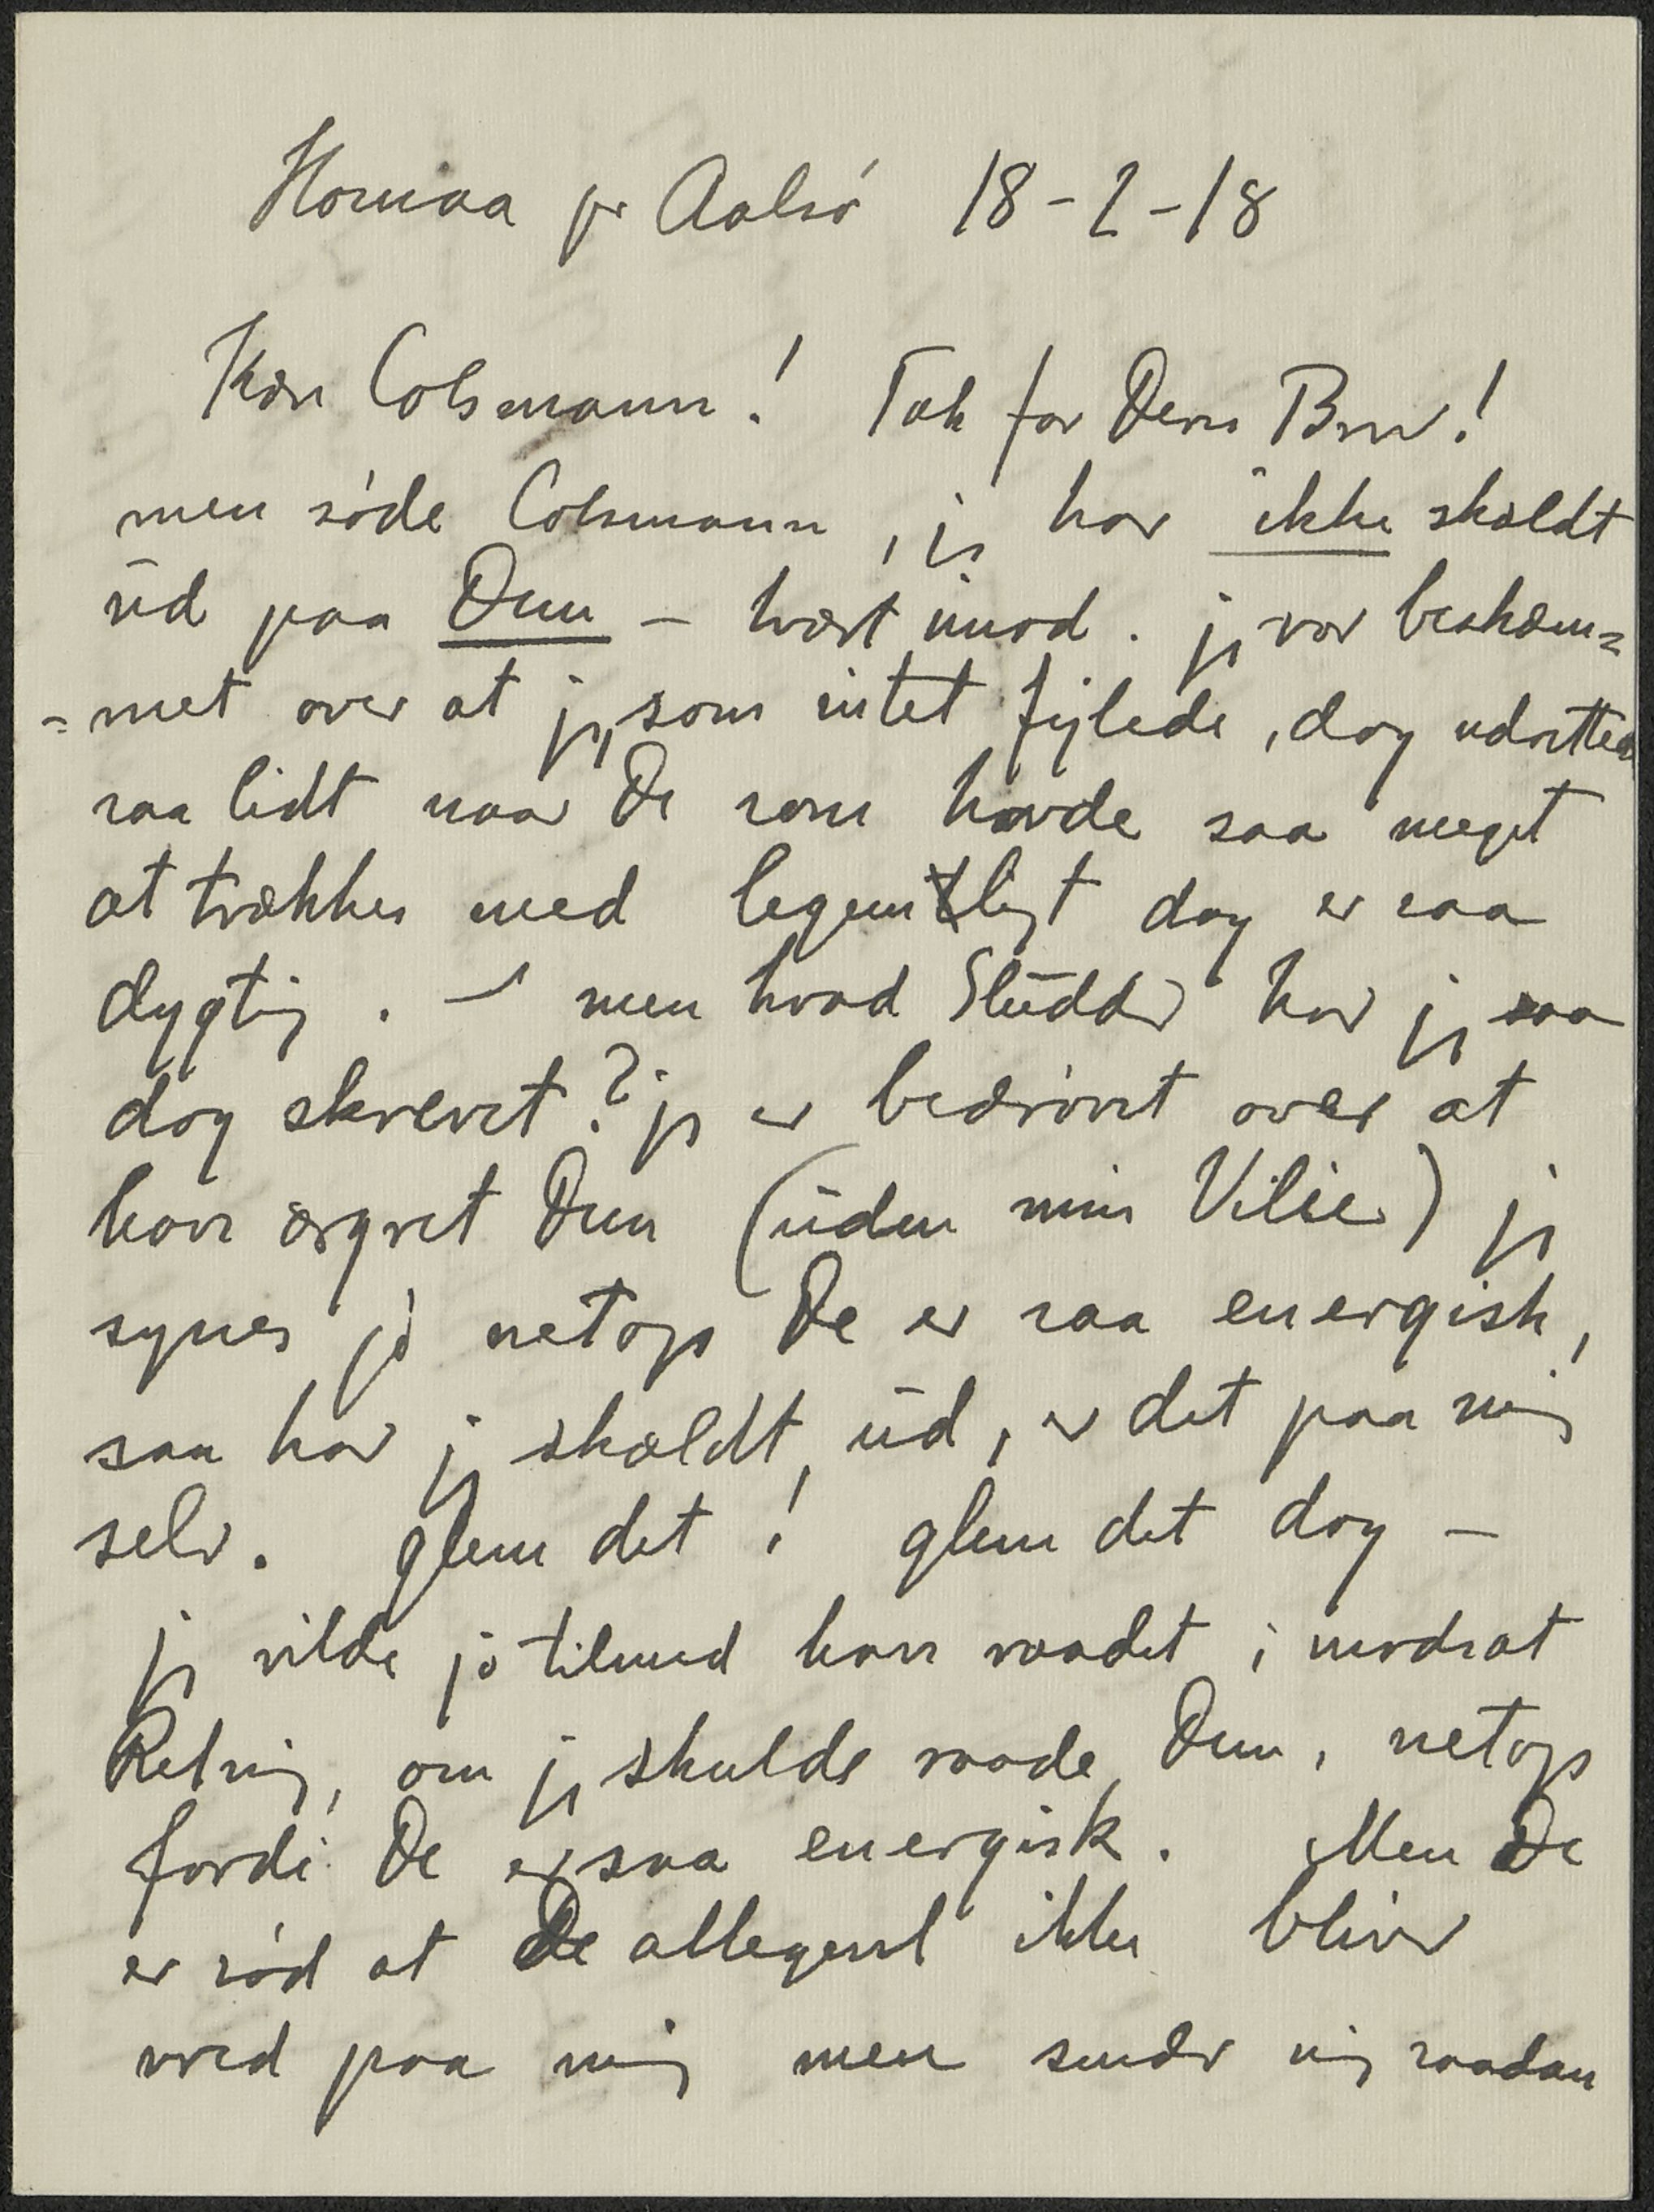 Hornaa pr Aalsø 18-2-18
Kære Colsmann! Tak for Deres Brev!
men søde Colsmann, jeg har ikke skældt
ud paa Dem – tvært imod. jeg var beskæm=
=met over at jeg, som intet fejlede, dog udretter
saa lidt naar De som havde saa meget
at trækkes med legemligt dog er saa
dygtig. – men hvad Sludder har jeg saa
dog skrevet? jeg er bedrøvet over at
have ærgret Dem (uden min Vilie) jeg
synes jo netop De er saa energisk,
saa har jeg skældt ud, er det paa mig
selv. glem det! glem det dog –
jeg vilde jo tilmed have raadet i modsat
Retning, om jeg skulde raade Dem, netop
fordi De er saa energisk. Men De
er sød at De alligevel ikke bliver
vred paa mig men sender mig saadan